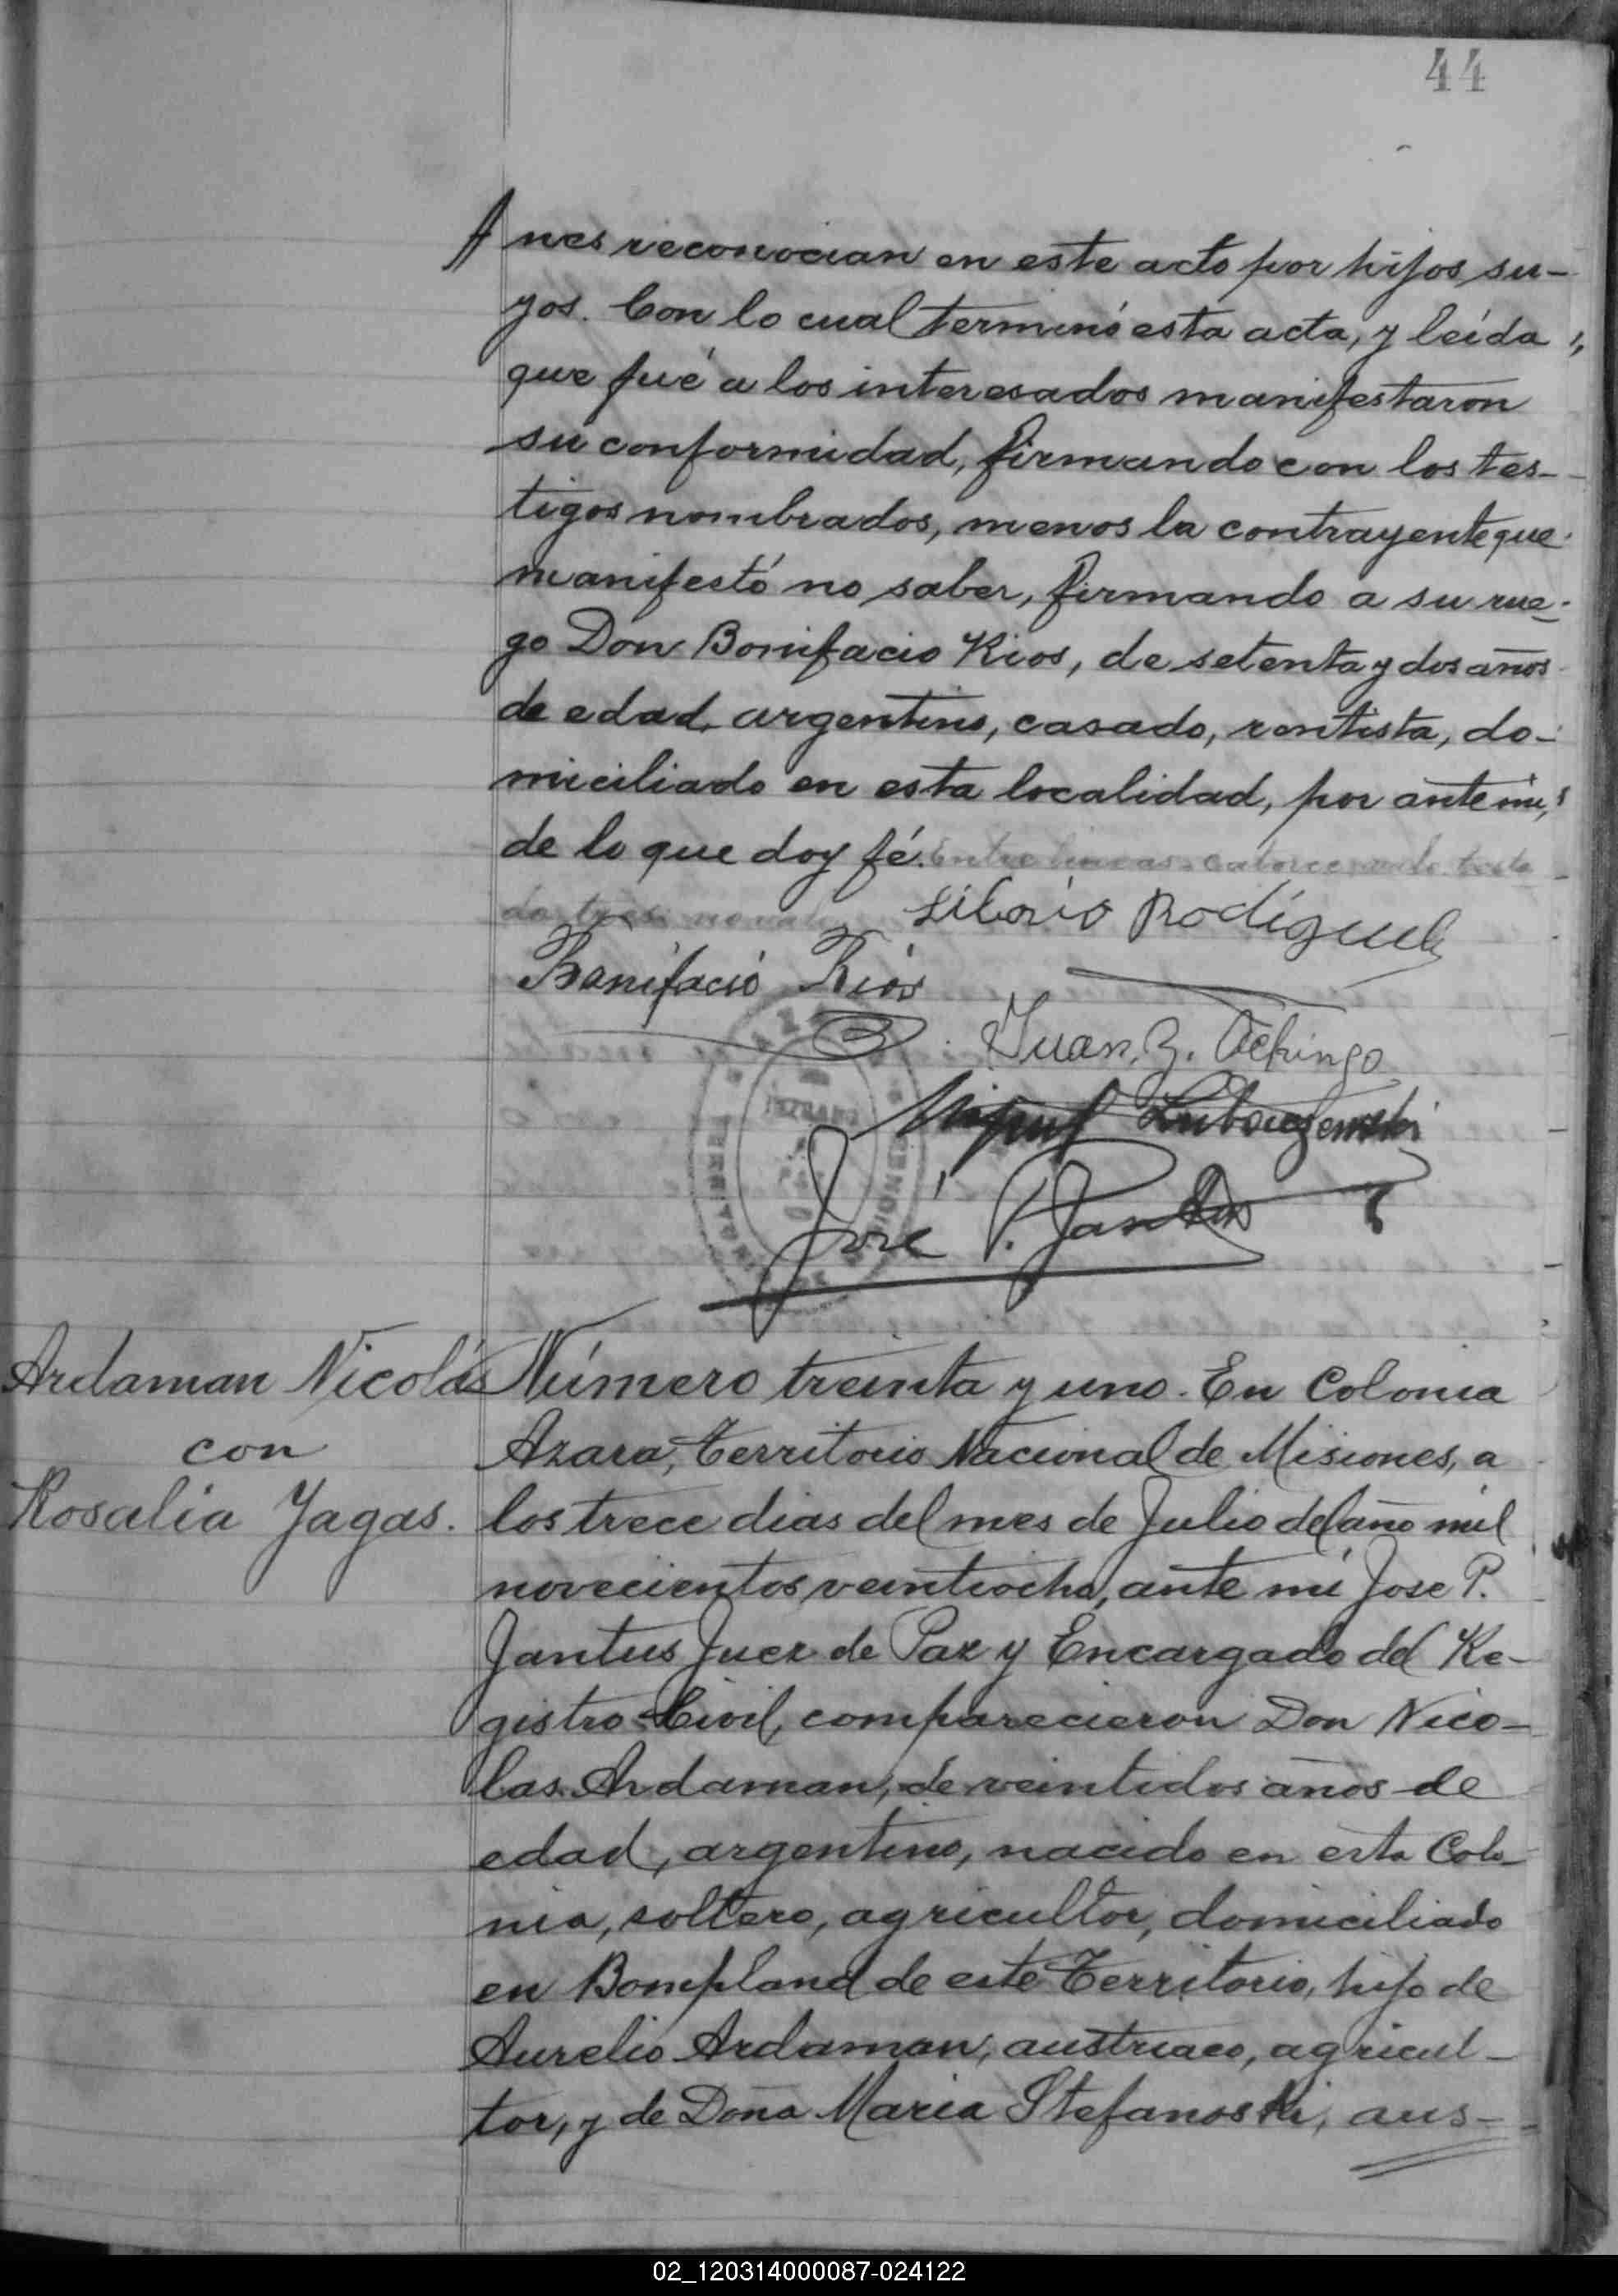 44
nes reconocian en este acto por hijos su-
yos. Con lo cual terminó esta acta, y leída
que fué a los interesados manifestaron
su conformidad, firmando con los tes-
tigos nombrados, menos la contrayente que
manifestó no saber, firmando a su rue-
go Don Bonifacio Rios, de setenta y dos años
de edad, argentino, casado, rentista, do-
miciliado en esta localidad, por ante mi,
de lo que doy fé. Entre lineas-catorce-vale. testa
do tres: no vale
Liborio Rodiguel
Bonifacio Rios
Juan. Z. Achingo
Miguel
José P. Jantus
Ardaman Nicolás
con
Rosalia Jagas.
Número treinta y uno. En Colonia
Azara, Territorio Nacional de Misiones, a
los trece dias del mes de Julio del año mil
novecientos veintiocho, ante mi Jose P.
Jantus Juez de Paz y Encargado del Re-
gistro Civil, comparecieron Don Nico-
las Ardaman, de veintidos años de
edad, argentino, nacido en esta Colo-
nia, soltero, agricultor, domiciliado
en Bompland de este Territorio, hijo de
Aurelio Ardaman, austriaco, agricul-
tor, y de Doña Maria Stefanoski, aus-
02_120314000087-024122